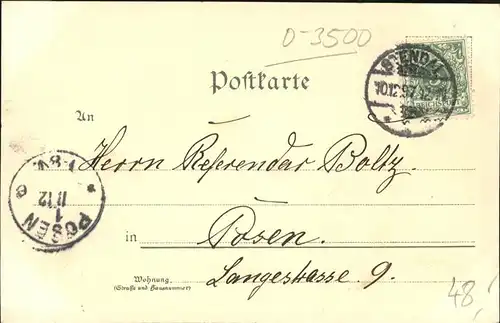 D-3500
Postkarte
STENDAL
10.12.97.12-1
An
Herrn Referendar Boltz
POSEN
1
11/12
in Posen.
Wohnung
(Straße und Hausnummer)
Langestrasse 9.
48,-